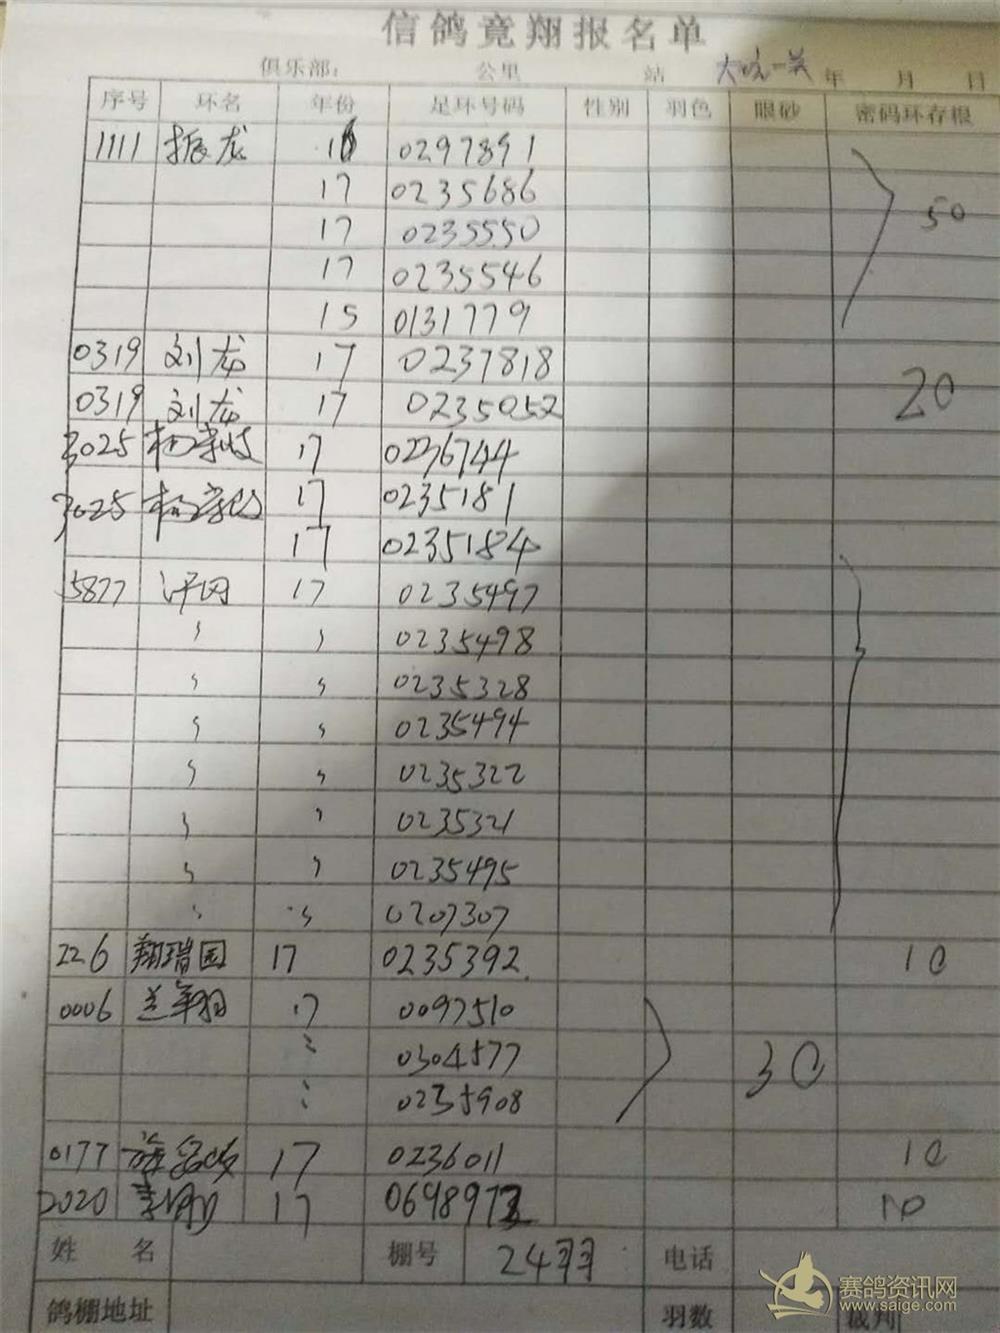 信鸽竞翔报名单
俱乐部： 公里 站 大 一关 年 月 日
序号 环名 年份 足环号码 性别 羽色 眼砂 密码环存根
1111 振龙 16 0297891
17 0235686 50
17 0235550
17 0235546
15 0131779
0319 刘龙 17 0237818
0319 刘龙 17 0235052 20
3025 17 0236744
3025 17 0235181
17 0235184
5877 17 0235497
〃 〃 0235498
〃 〃 0235328
〃 〃 0235494
〃 〃 0235322
〃 〃 0235321
〃 〃 0235495
〃 〃 0207307
226 翔瑞园 17 0235392 10
0006 兰军翔 17 0097510
〃 0304577 30
〃 0235908
0177 17 0236011 10
2020 17 0698973 10
姓名 棚号 24羽 电话
鸽棚地址 羽数 裁判
赛鸽资讯网
www.saige.com